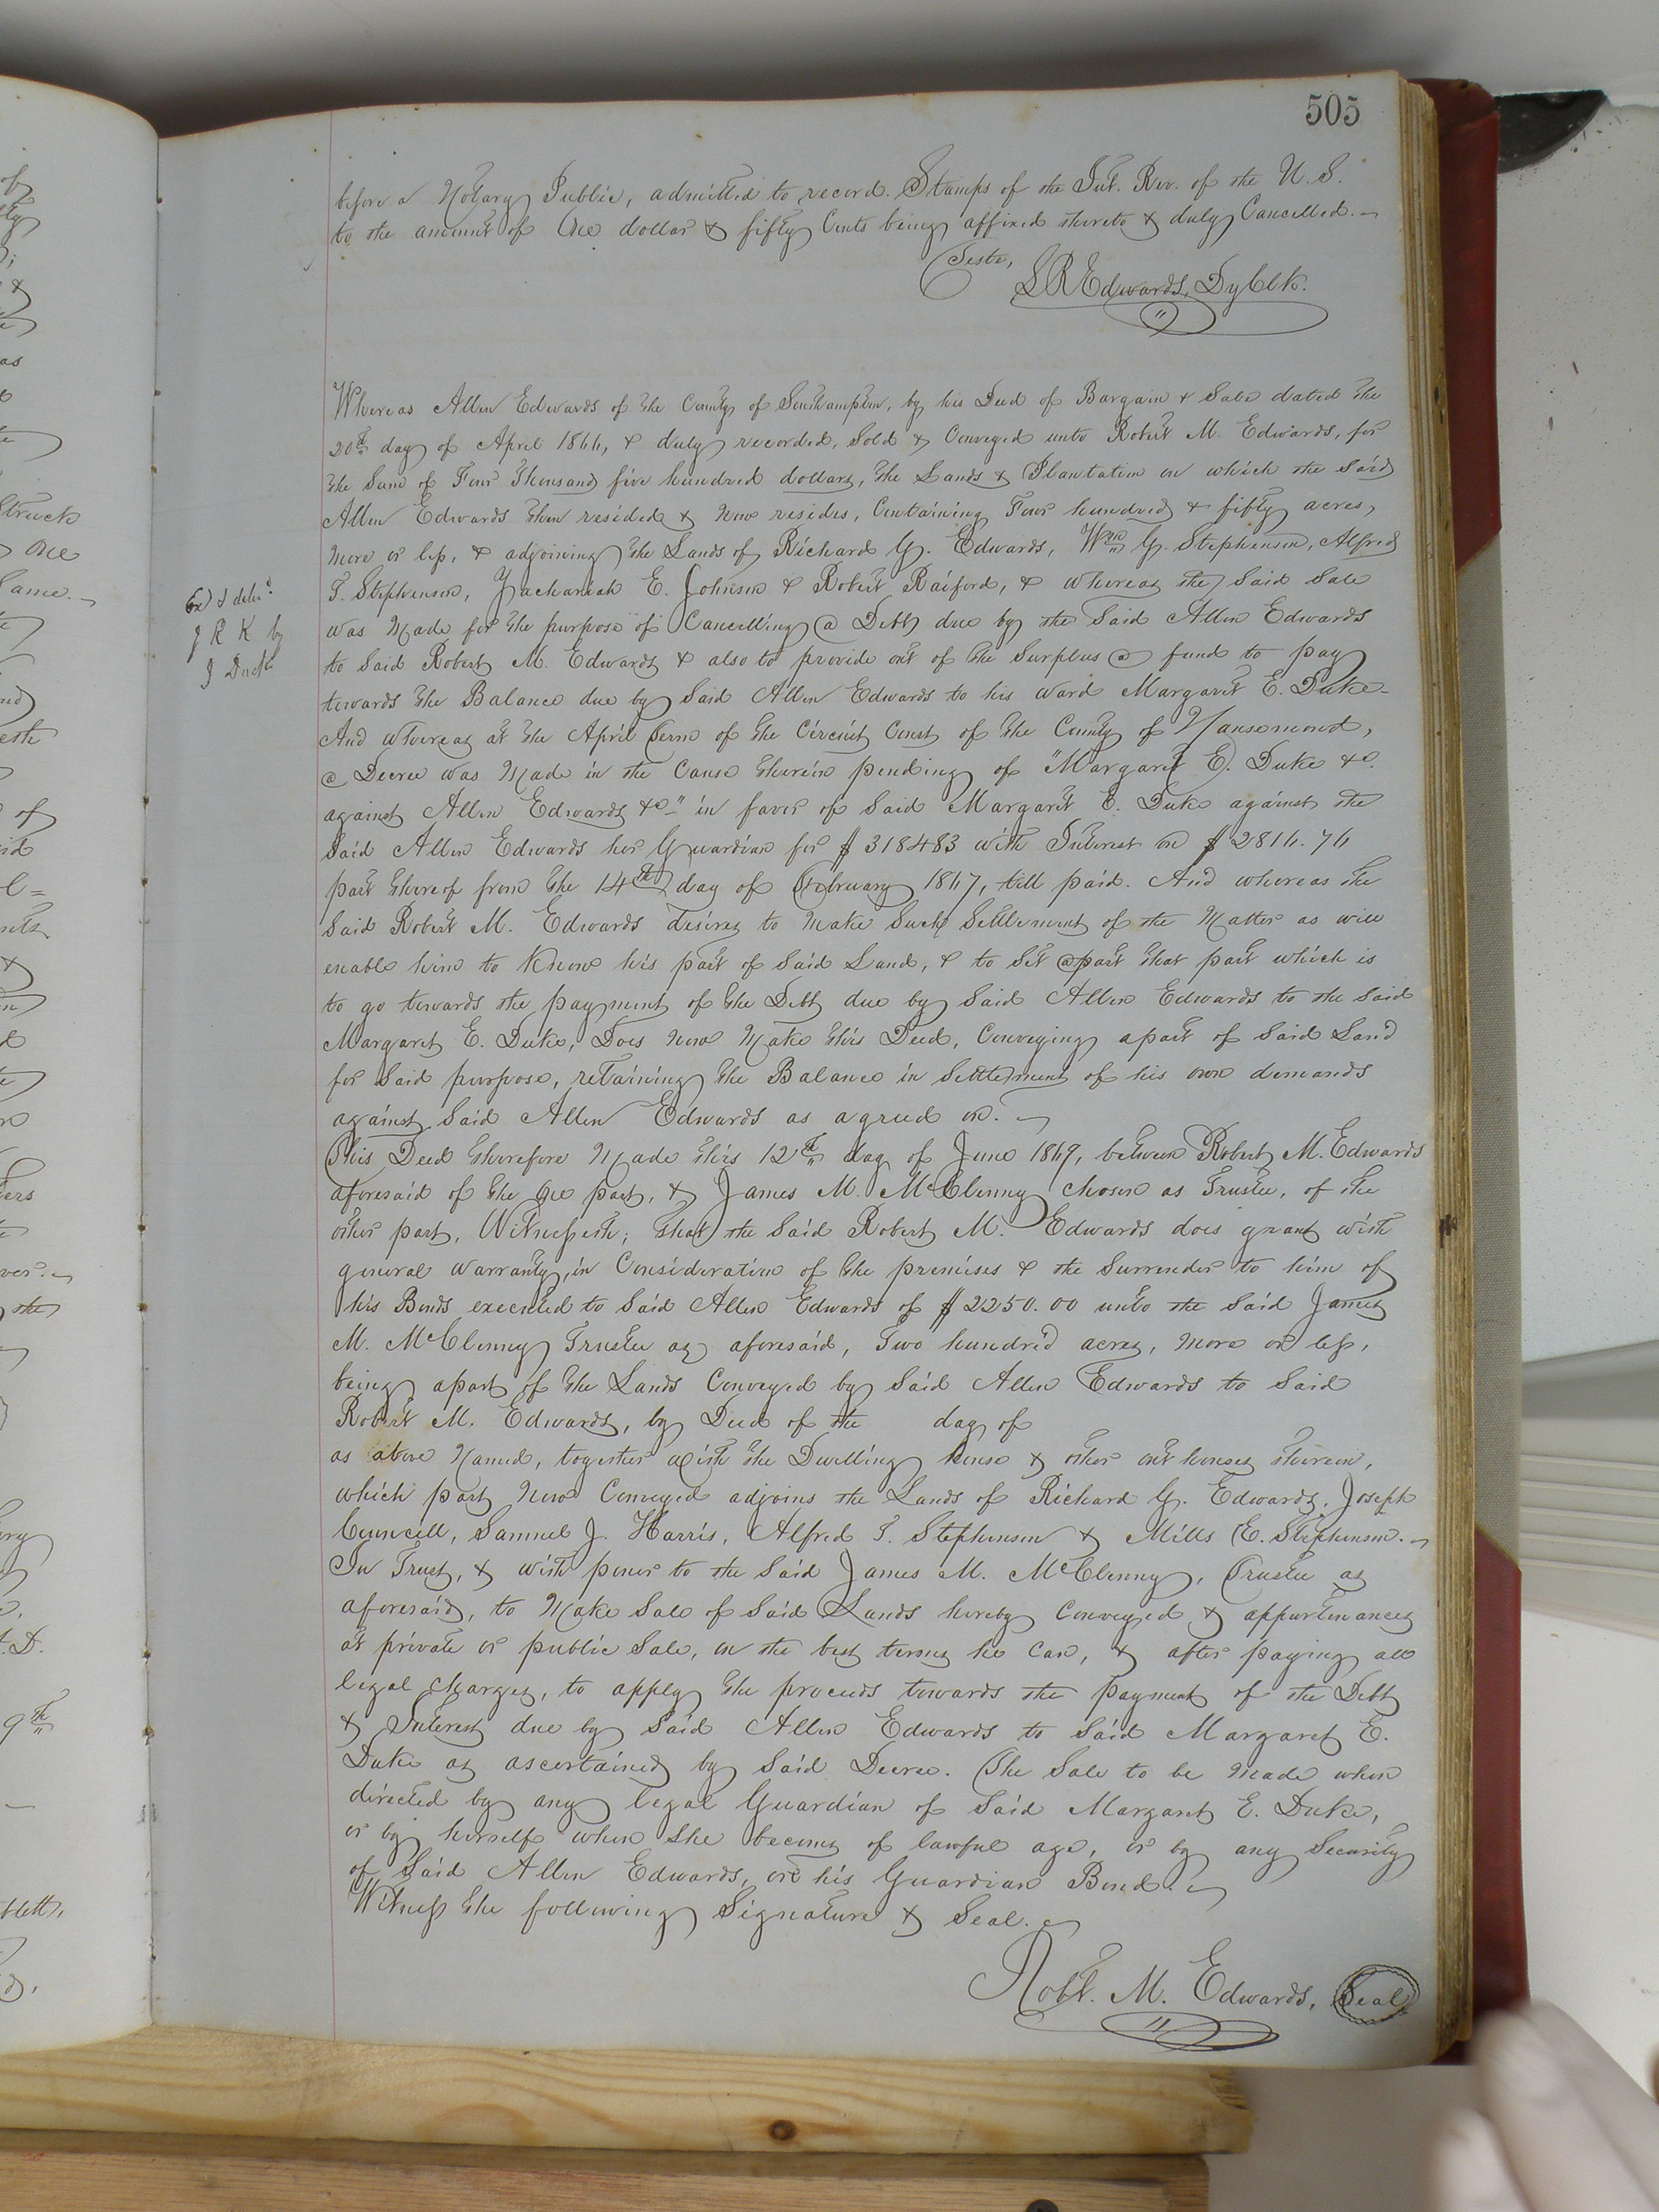 505
before a Notary Public, admitted to record. Stamps of the Int. Rev. of the U. S.
to the amount of One dollar & fifty Cents being affixed thereto & duly Cancelled.
Teste,
L R Edwards, Dy Clk.
Whereas Allen Edwards of the County of Southampton, by his Deed of Bargain & Sale dated the
20th day of April 1866, & duly recorded, Sold & Conveyed unto Robert M. Edwards, for
the Sum of Four Thousand five hundred dollars, the Lands & Plantation on which the Said
Allen Edwards then resided & now resides, Containing Four hundred & fifty acres,
more or less, & adjoining the Lands of Richard G. Edwards, Wm G. Stephenson, Alfred
T. Stephenson, Zachariah E. Johnson & Robert Raiford, & whereas the Said Sale
was Made for the purpose of Cancelling a Debt due by the Said Allen Edwards
to Said Robert M. Edwards & also to provide out of the Surplus a fund to pay
towards the Balance due by Said Allen Edwards to his ward Margaret E. Duke
And whereas at the April Term of the Circuit Court of the County of Nansemond,
a Decree was Made in the Cause therein pending of "Margaret E. Duke &c.
against Allen Edwards &c" in favor of Said Margaret E. Duke against the
Said Allen Edwards her Guardian for $ 318483 with Interest on $ 2816. 76
part thereof from the 14th day of February 1867, till paid. And whereas the
Said Robert M. Edwards desires to Make Such Settlement of the Matter as will
enable him to Know his part of Said Land, & to Set apart that part which is
to go towards the payment of the Debt due by Said Allen Edwards to the Said
Margaret E. Duke, Does now Make this Deed, Conveying apart of Said Land
for Said purpose, retaining the Balance in Settlement of his own demands
against Said Allen Edwards as agreed on.
This Deed therefore Made this 12th day of June 1869, between Robert M. Edwards
aforesaid of the One part, & James M. McClenny chosen as Trustee, of the
other part, Witnesseth; that the Said Robert M. Edwards does grant with
general warranty, in Consideration of the premises & the Surrender to him of
his Bonds executed to Said Allen Edwards of $ 2250.00 unto the Said James
M. McClenny Trustee as aforesaid, Two hundred acres, more or less,
being apart of the Lands Conveyed by Said Allen Edwards to Said
Robert M. Edwards, by Deed of the day of
as above Named, together with the Dwelling house & other out houses thereon,
which part Now Conveyed adjoins the Lands of Richard G. Edwards, Joseph
Councill, Samuel J. Harris, Alfred T. Stephenson & Mills E. Stephenson.
In Trust, & with power to the Said James M. McClenny, Trustee as
aforesaid, to Make Sale of Said Lands hereby Conveyed & appurtenances
at private or public Sale, on the best terms he Can, & after paying all
legal Charges, to apply the proceeds towards the payment of the Debt
& Interest due by Said Allen Edwards to Said Margaret E.
Duke as ascertained by Said Decree. The Sale to be Made when
directed by any legal Guardian of Said Margaret E. Duke,
or by herself when She becomes of lawful age, or by any Security
of Said Allen Edwards, on his Guardian Bond.
Witness the following Signature & Seal.
Robt. M. Edwards, Seal